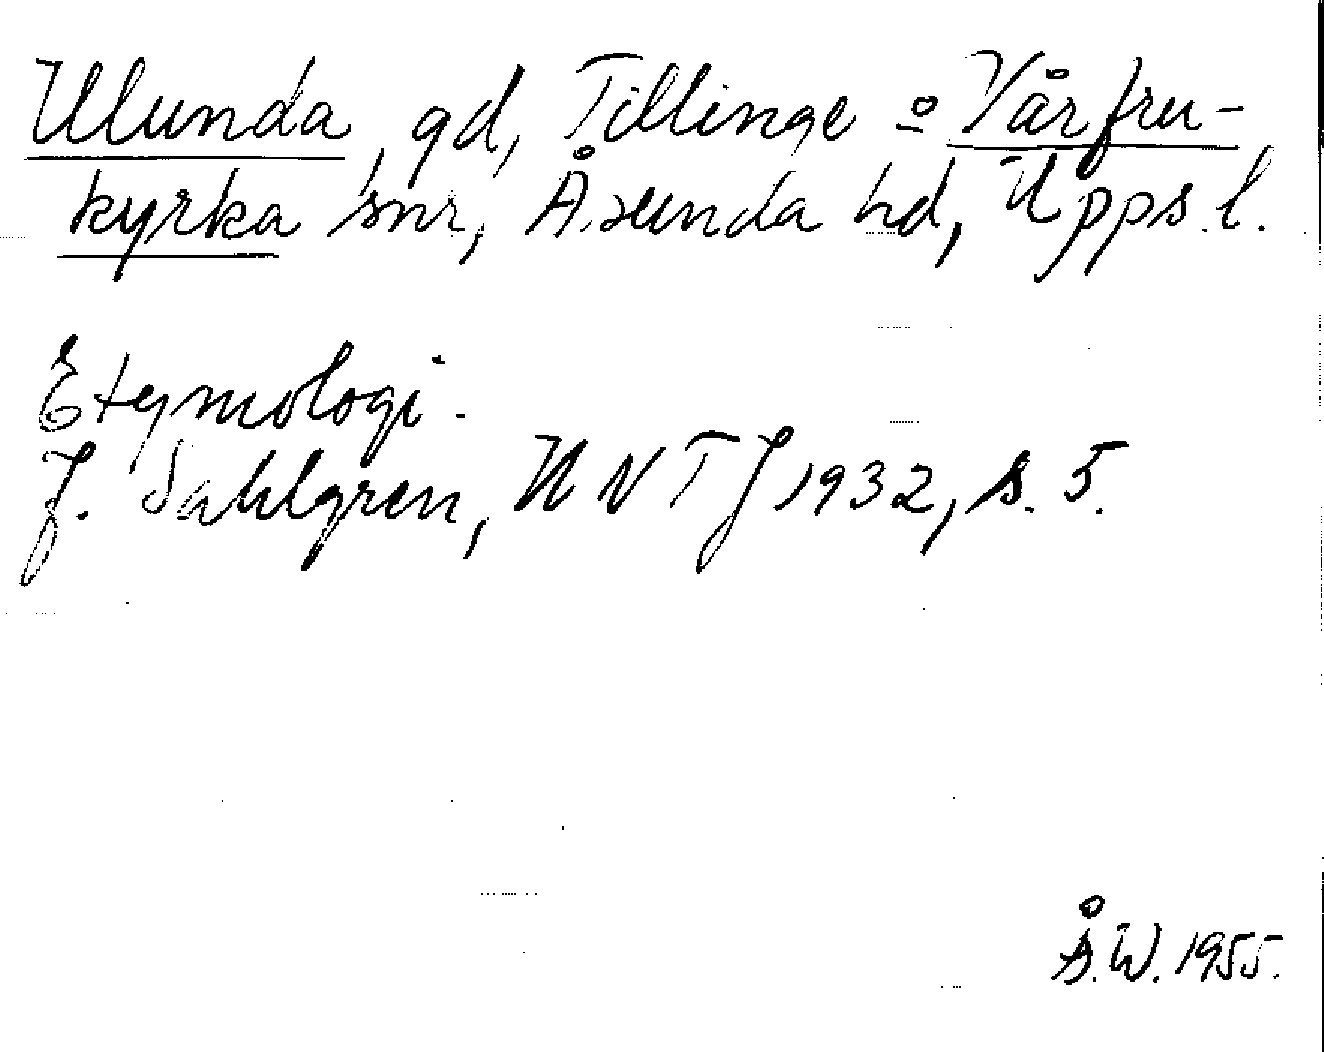 Ulunda, gd, Tillinge o Vårfru-
kyrka snr, Åsunda hd, Upps. l.
Etymologi.
J. Sahlgren, UNTJ 1932, s. 5.
Å.W. 1955.